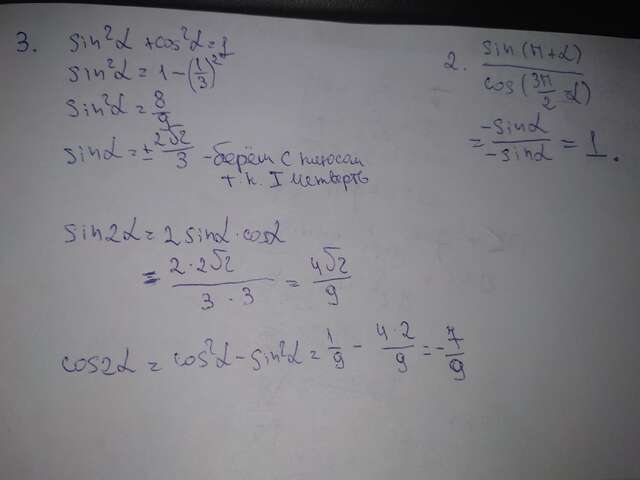 3. sin²α + cos²α = 1
sin²α = 1 - (1/3)²
sin²α = 8/9
sinα = ± 2√2/3 - берём с плюсом
т.к. I четверть
sin2α = 2 sinα · cosα
= 2·2√2 / 3·3 = 4√2/9
cos2α = cos²α - sin²α = 1/9 - 4·2/9 = -7/9
2. sin(π+α) / cos(3π/2 - α)
= -sinα / -sinα = 1.